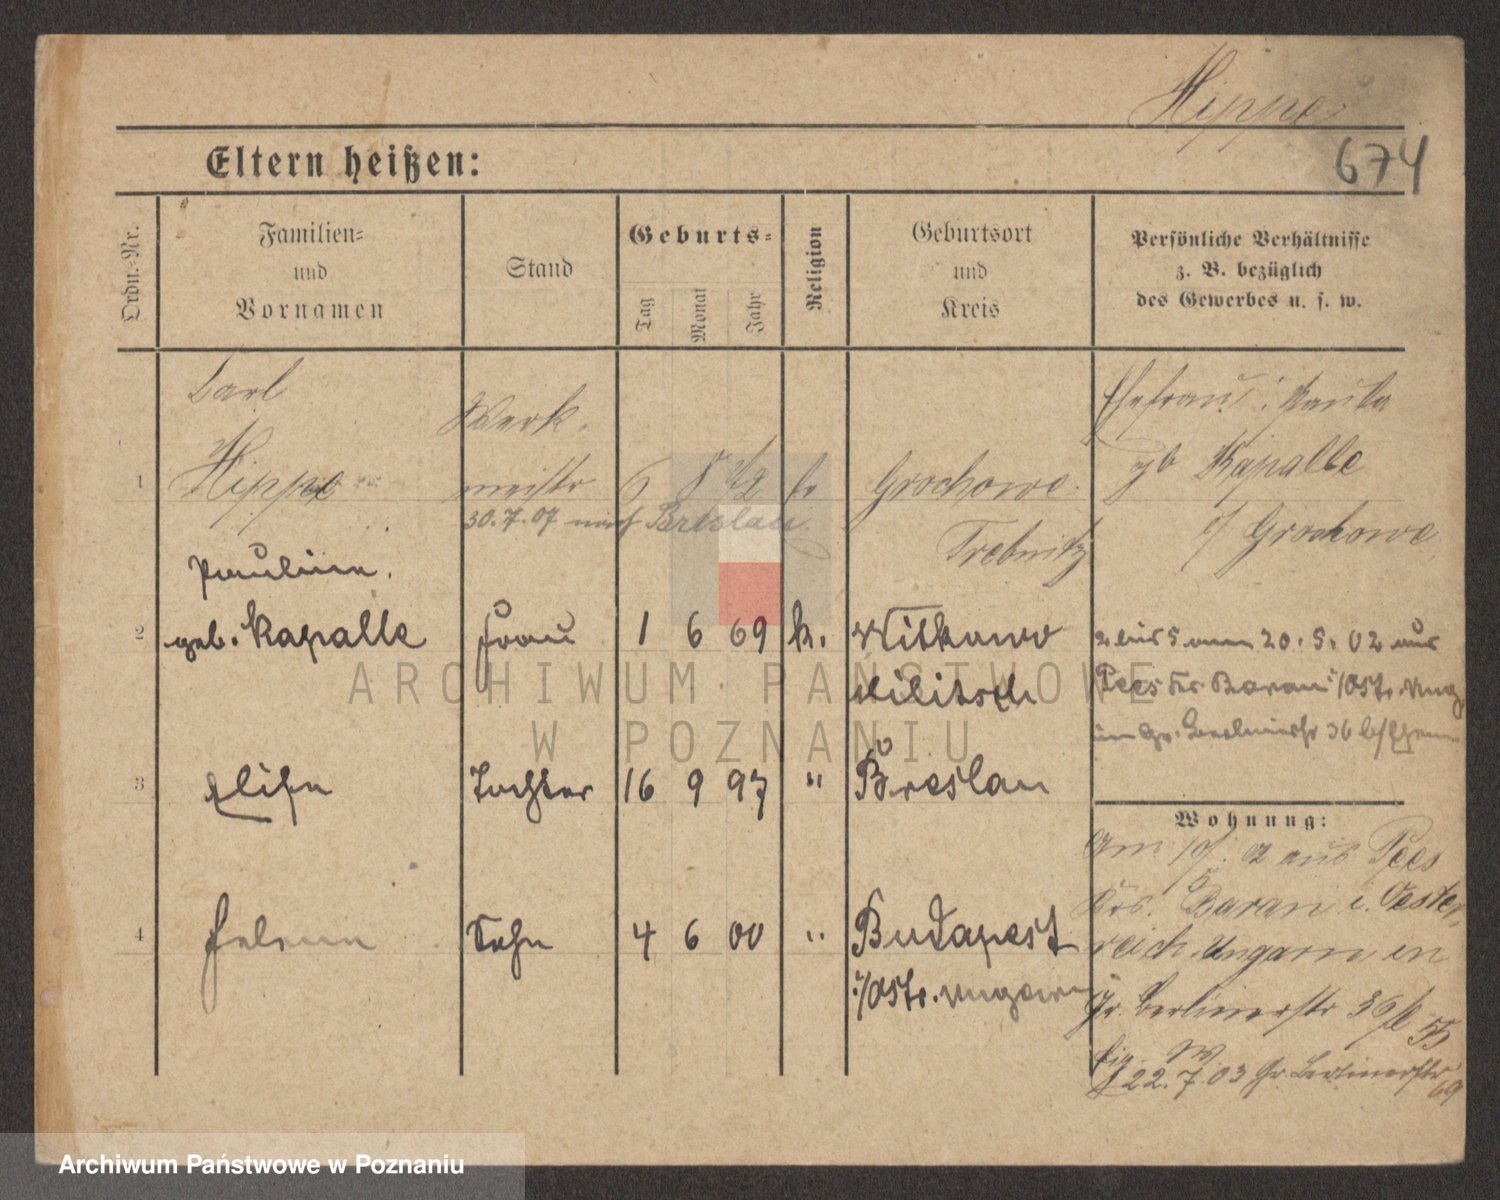 Hippe
674
Eltern heißen:
Ordn.-Nr.
Familien-
und
Vornamen
Stand
Geburts-
Tag
Monat
Jahr
Religion
Geburtsort
und
Kreis
Persönliche Verhältnisse
z. B. bezüglich
des Gewerbes u. s. w.
1
Carl
Hippe
Werk-
meister
6 8 72 k
Grochowe
Trebnitz
Ehefrau: Paula
gb Kapalle
Grochowe
30.7.07 nach Breslau
2
Pauline
geb. Kapalle
Frau
1 6 69 k.
Militsch
2 bis 5 am 20.5.02 aus
Pees Kr. Baran i/Östr. Ung
Gr. Berlinerstr 36
3
Elise
Tochter
16 9 97 "
Breslau
4
Sohn
4 6 00 "
Budapest
i/Östr. Ungarn
Wohnung:
Am 02 aus Pees
Krs. Baran i. Oester-
reich. Ungarn in
Gr. Berlinerstr 36
22.7.03 Gr. Berlinerstr
69
ARCHIWUM PAŃSTWOWE
W POZNANIU
Archiwum Państwowe w Poznaniu